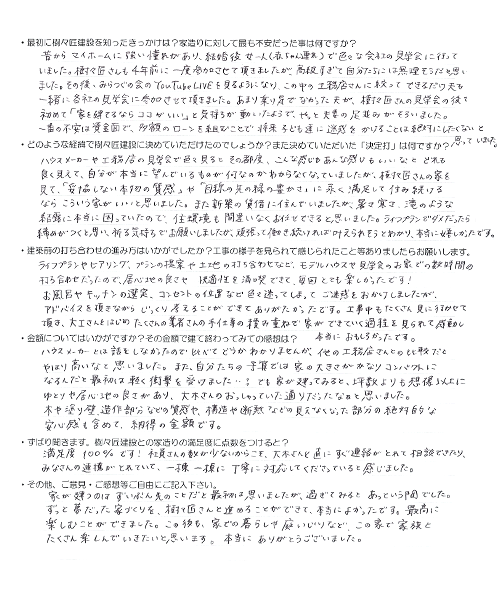 ・最初に樹々匠建設を知ったきっかけは?家造りに対して最も不安だった事は何ですか?
昔からマイホームに強い憧れがあり、結婚後 せ一人(赤ちゃん連れ)で色々な会社の見学会に行って
いました。樹々匠さんも4年前に一度参加させて頂きましたが、高級すぎて自分たちには無理そうだと思い
ました。その後、みらつぐの会のYouTube LIVEを見るようになり、この中の工務店さんに絞ってできるだけ夫も
一緒に各社の見学会に参加させて頂きました。あまり乗り気でなかった夫が、樹々匠さんの見学会の後で
初めて「家を建てるならココがいい」と気持ちが動いたようで、やっと夫婦の足並みがそろいました。
一番の不安は資金面で、多額のローンを組むことで将来子ども達に迷惑をかけることは絶対にしたくないと
思っていました。
・どのような経緯で樹々匠建設に決めていただけたのでしょうか?また決めていただいた「決定打」は何ですか?
ハウスメーカーや工務店の見学会で色々見るとその都度、こんな感じもあんな感じもいいな とどれも
良く見えて、自分が本当に望んでいるものが何なのかわからなくなっていましたが、樹々匠さんの家を
見て、「妥協しない本物の質感」や「自然の光の緑の豊かさ」に永く満足して住み続ける
ならこういう家がいいと思いました。また新築の賃貸に住んでいましたが、暑さ寒さ、滝のような
結露に本当に困っていたので、住環境も間違いなくお任せできると思いました。ライフプランでダメだったら
諦めがつくと思い、祈る気持ちでお願いしましたが、頑張って働き続ければ叶えられそうとわかり、本当に嬉しかったです。
・建築前の打ち合わせの進み方はいかがでしたか?工事の様子を見られて感じられたこと等ありましたらお願いします。
ライフプランやヒアリング、プランの提案や土地の打ち合わせなど、モデルハウスや見学会のお家での数時間の
打ち合わせだったので、居心地の良さや 快適性を満喫できて、毎回とても楽しかったです!
お風呂やキッチンの選定、コンセントの位置など色々迷ってしまってご迷惑をおかけしましたが、
アドバイスを頂きながらじっくり考えることができてありがたかったです。工事中もたくさん見に行かせて
頂き、大工さんをはじめたくさんの業者さんの手仕事の積み重ねで家ができていく過程を見られて感動し
本当におもしろかったです。
・金額についてはいかがですか?その金額で建て終わってみての感想は?
ハウスメーカーとは話をしなかったので比べてどうかわかりませんが、他の工務店さんとの比較だと
やはり高いなと思いました。また、自分たちの予算では家の大きさがかなりコンパクトに
なるんだと最初は軽く衝撃を受けました…!でも家が建ってみると、坪数よりも想像以上に
ゆとりや居心地の良さがあり、大木さんのおしゃっていた通りだったなぁと思いました。
木や塗り壁、造作部分などの質感や、構造や断熱などの見えなくなった部分の絶対的な
安心感も含めて、納得の金額です。
・ずばり聞きます。樹々匠建設との家造りの満足度に点数をつけると?
満足度100%です!社員さんの数が少ないからこそ、大木さんと直にすぐ連絡がとれて相談できたり、
みなさんの連携がとれていて、一棟一棟に丁寧に対応してくださっていると感じました。
・その他、ご意見・ご感想等ご自由にご記入下さい。
家が建つのはずいぶん先のことだと最初は思いましたが、過ぎてみるとあっという間でした。
ずっと夢だった家づくりを、樹々匠さんと進めることができて、本当によかったです。最高に
楽しむことができました。この後も、家での暮らしや庭いじりなど、この家で家族と
たくさん楽しんでいきたいと思います。本当にありがとうございました。